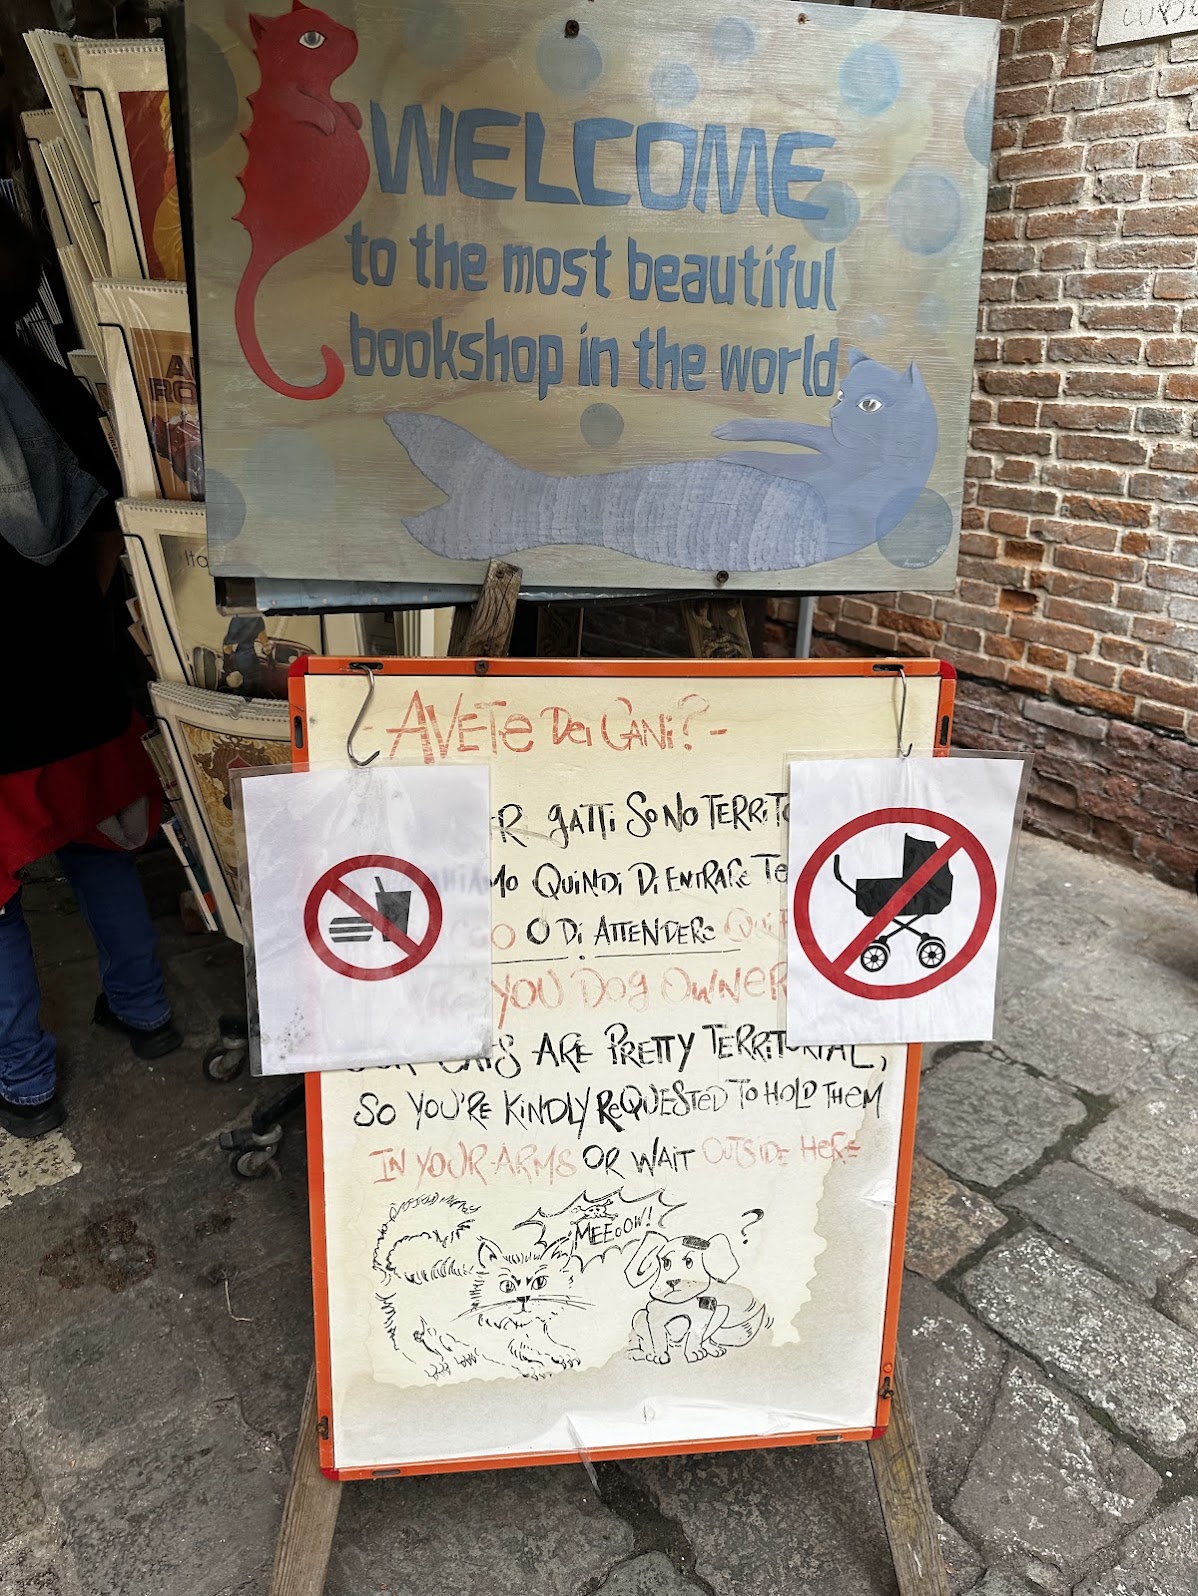 WELCOME
to the most beautiful
bookshop in the world
- AVETE DEI CANI? -
GATTI SONO TERRITO
QUINDI DI ENTRARE TE
O DI ATTENDERE
YOU DOG OWNER
CATS ARE PRETTY TERRITORIAL,
SO YOU'RE KINDLY REQUESTED TO HOLD THEM
IN YOUR ARMS OR WAIT OUTSIDE HERE
MEEOOW!
?